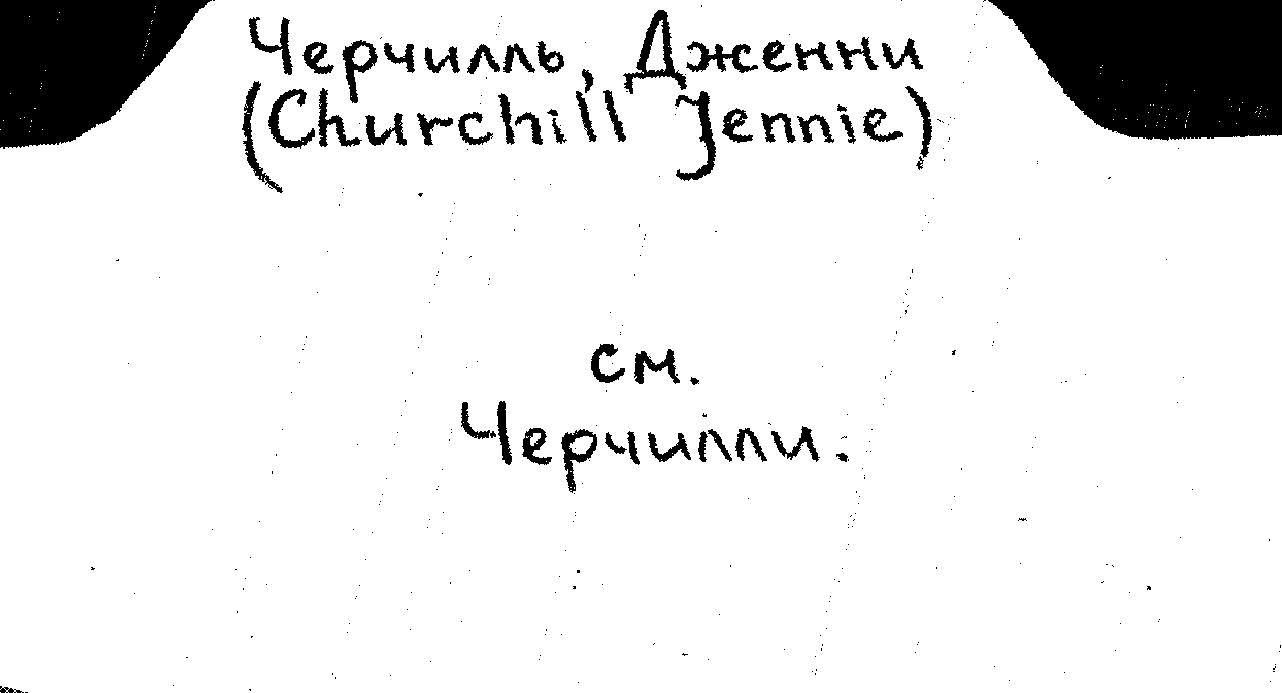 Черчилль, Дженни
(Churchill Jennie)
см.
Черчилли.